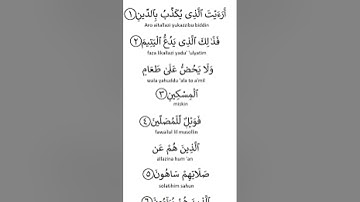 أَرَءَيْتَ ٱلَّذِى يُكَذِّبُ بِٱلدِّينِ ١
Aro aitallazi yukazzibu biddin
فَذَٰلِكَ ٱلَّذِى يَدُعُّ ٱلْيَتِيمَ ٢
faza likallazi yadu' 'ulyatim
وَلَا يَحُضُّ عَلَىٰ طَعَامِ
wala yahuddu 'ala to a'mil
ٱلْمِسْكِينِ ٣
miskin
فَوَيْلٌ لِّلْمُصَلِّينَ ٤
fawailul lil musollin
ٱلَّذِينَ هُمْ عَن
allazina hum 'an
صَلَاتِهِمْ سَاهُونَ ٥
solatihim sahun
ٱلَّذِينَ هُمْ يُرَآءُونَ ٦